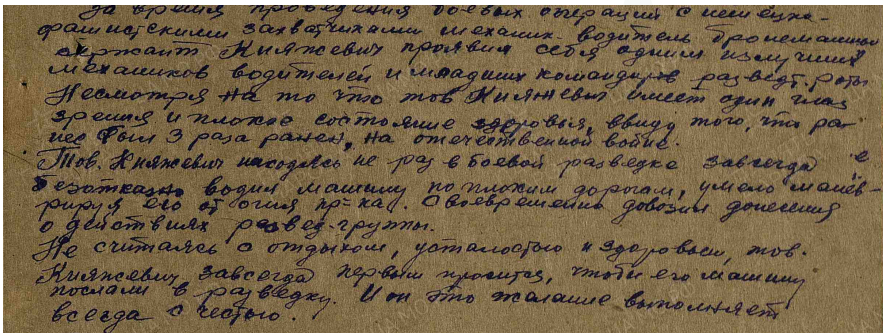 За время проведения боевых операций с немецко-
фашистскими захватчиками механик-водитель бронемашины
сержант Княжевич проявил себя одним из лучших
механиков водителей и младших командиров развед. роты
Несмотря на то что тов. Княжевич имеет один глаз
зрения и плохое состояние здоровья, ввиду того, что ра-
нее был 3 раза ранен, на отечественной войне.
Тов. Княжевич находясь не раз в боевой разведке завсегда
безотказно водил машину по плохим дорогам, умело манёв-
рируя его от огня пр-ка. Своевременно довозил донесения
о действиях развед-группы.
Не считаясь с отдыхом, усталостью и здоровьем, тов.
Княжевич завсегда первым просится, чтобы его машину
послали в разведку. И он это жалание выполняет
всегда с честью.